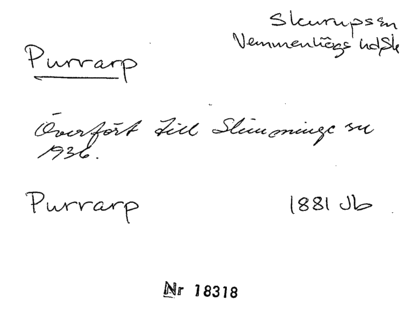 Skurups sn
Vemmenhögs hd, Sk
Purrarp
Överfört till Slimminge sn
1936.
Purrarp 1881 Jb
Nr 18318